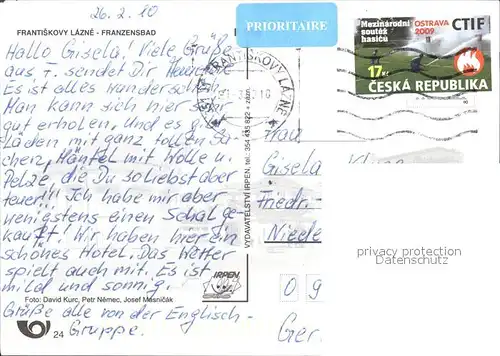 26.2.10
FRANTIŠKOVY LÁZNĚ - FRANZENSBAD
Hallo Gisela! Viele Grüße
aus F. sendet Dir
Es ist alles wunderschön.
Man kann sich hier sehr
gut erholen. Und es gibt
Läden mit ganz tollen Sa-
chen, Mäntel mit Wolle u.
Pelze, die Du so liebst aber
teuer!!! Ich habe mir aber
wenigstens einen Schal ge-
kauft! Wir haben hier ein
schönes Hotel. Das Wetter
spielt auch mit. Es ist
mild und sonnig.
Foto: David Kurc, Petr Němec, Josef Mesničák
Grüße alle von der Englisch-
24 Gruppe.
VYDAVATELSTVÍ IRPEN, tel.: 354 435 822 + zázn.
IRPEN
PRIORITAIRE
FRANTIŠKOVY LÁZNĚ
Mezinárodní
soutěž
hasičů
OSTRAVA
2009
CTIF
17 Kč
ČESKÁ REPUBLIKA
Frau
Gisela
Friedr-
Niede
privacy protection
Datenschutz
09
Ger